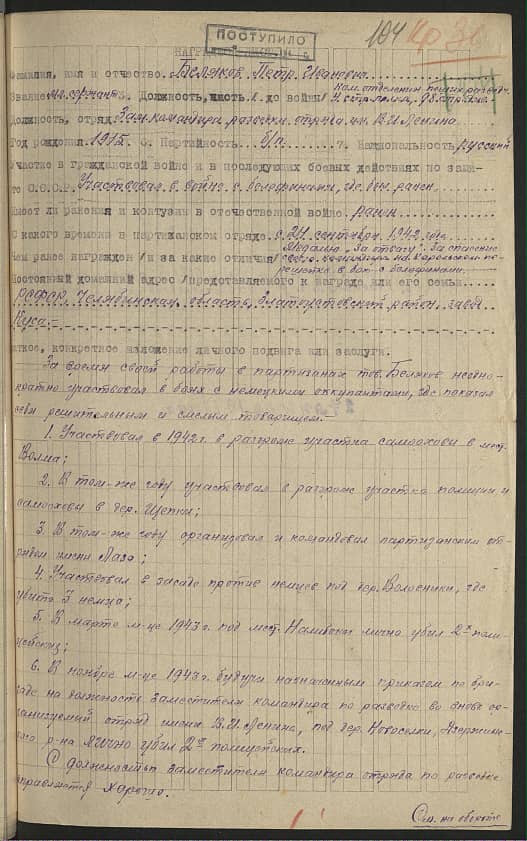 ПОСТУПИЛО
104
НАГРАДНОЙ ЛИСТ
Фамилия, имя и отчество. Беляков Петр Иванович
Звание мл. сержант 3. Должность, часть 1. до войны Ком. отделения пешей разведки
Должность, отряд. Зам. командира разведки отряда им. В.И. Ленина
Год рождения 1915. 6. Партийность б/п 7. Национальность русский
Участие в гражданской войне и в последующих боевых действиях по защи-
те С.С.С.Р. Участвовал в войне с белофинами, где был ранен.
Имеет ли ранения и контузии в отечественной войне ранен
С какого времени в партизанском отряде с 24 сентября 1942 года
Чем ранее награжден /и за какие отличия/ Медалью "За отвагу". За спасение
своего командира на Карельском пе-
решейке в бою с белофинами.
Постоянный домашний адрес /представляемого к награде или его семьи.
РСФСР, Челябинская область, Златоустовский район, завод
Куса.
Краткое, конкретное изложение личного подвига или заслуги.
За время своей работы в партизанах тов. Беляков неодно-
кратно участвовал в боях с немецкими оккупантами, где показал
себя решительным и смелым товарищем.
1. Участвовал в 1942 г. в разгроме участка самооховы в мест.
Волма;
2. В том-же году участвовал в разгроме участка полиции и
самооховы в дер. Щепки;
3. В том-же году организовал и командовал партизанским от-
рядом имени Лазо;
4. Участвовал в засаде против немцев под дер. Волосники, где
убито 3 немца;
5. В марте м-це 1943 г. под мест. Налибоки лично убил 2х поли-
цейских;
6. В ноябре м-це 1943 г. будучи назначенным приказом по бри-
гаде на должность заместителя командира по разведке во вновь ор-
ганизуемый отряд имени В.И. Ленина, под дер. Новоселки, Дзержинс-
кого р-на лично убил 2ух полицейских.
С должностью заместителя командира отряда по разведке
справляется хорошо.
См. на обороте